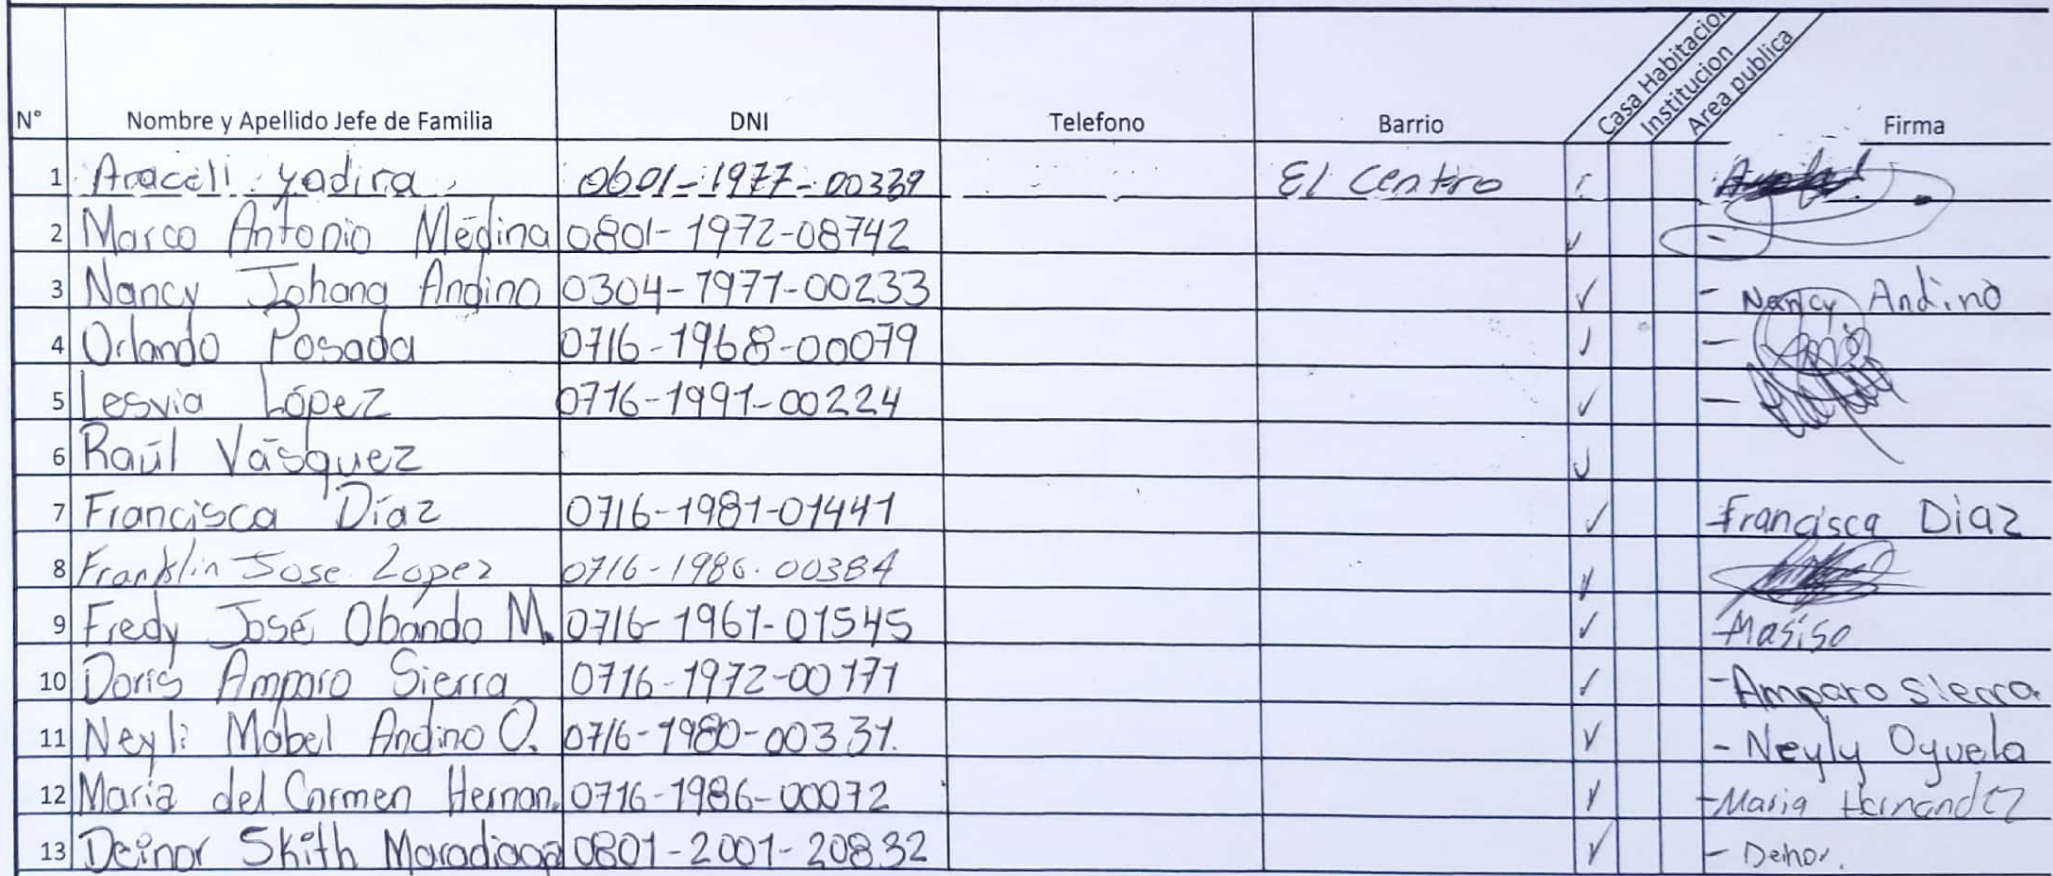 N° Nombre y Apellido Jefe de Familia DNI Telefono Barrio Casa Habitacion Institucion Area publica Firma
1 Araceli yadira 0601-1977-00339 El Centro
2 Marco Antonio Médina 0801-1972-08742 ✓
3 Nancy Johana Andino 0304-1977-00233 ✓ - Nancy Andino
4 Orlando Posada 0716-1968-00079 ✓ -
5 Lesvia López 0716-1991-00224 ✓ -
6 Raúl Vásquez ✓
7 Francisca Díaz 0716-1981-01441 ✓ Francisca Diaz
8 Franklin Jose Lopez 0716-1986-00384 ✓
9 Fredy José Obando M. 0716-1961-01545 ✓ -Masiso
10 Doris Amparo Sierra 0716-1972-00171 ✓ -Amparo Sierra
11 Neyli Mabel Andino O. 0716-1980-00331. ✓ - Neyly Oyuela
12 María del Carmen Hernan. 0716-1986-00072 ✓ -Maria Hernandez
13 Deinor Skith Maradiaga 0801-2001-20832 ✓ - Deinor.